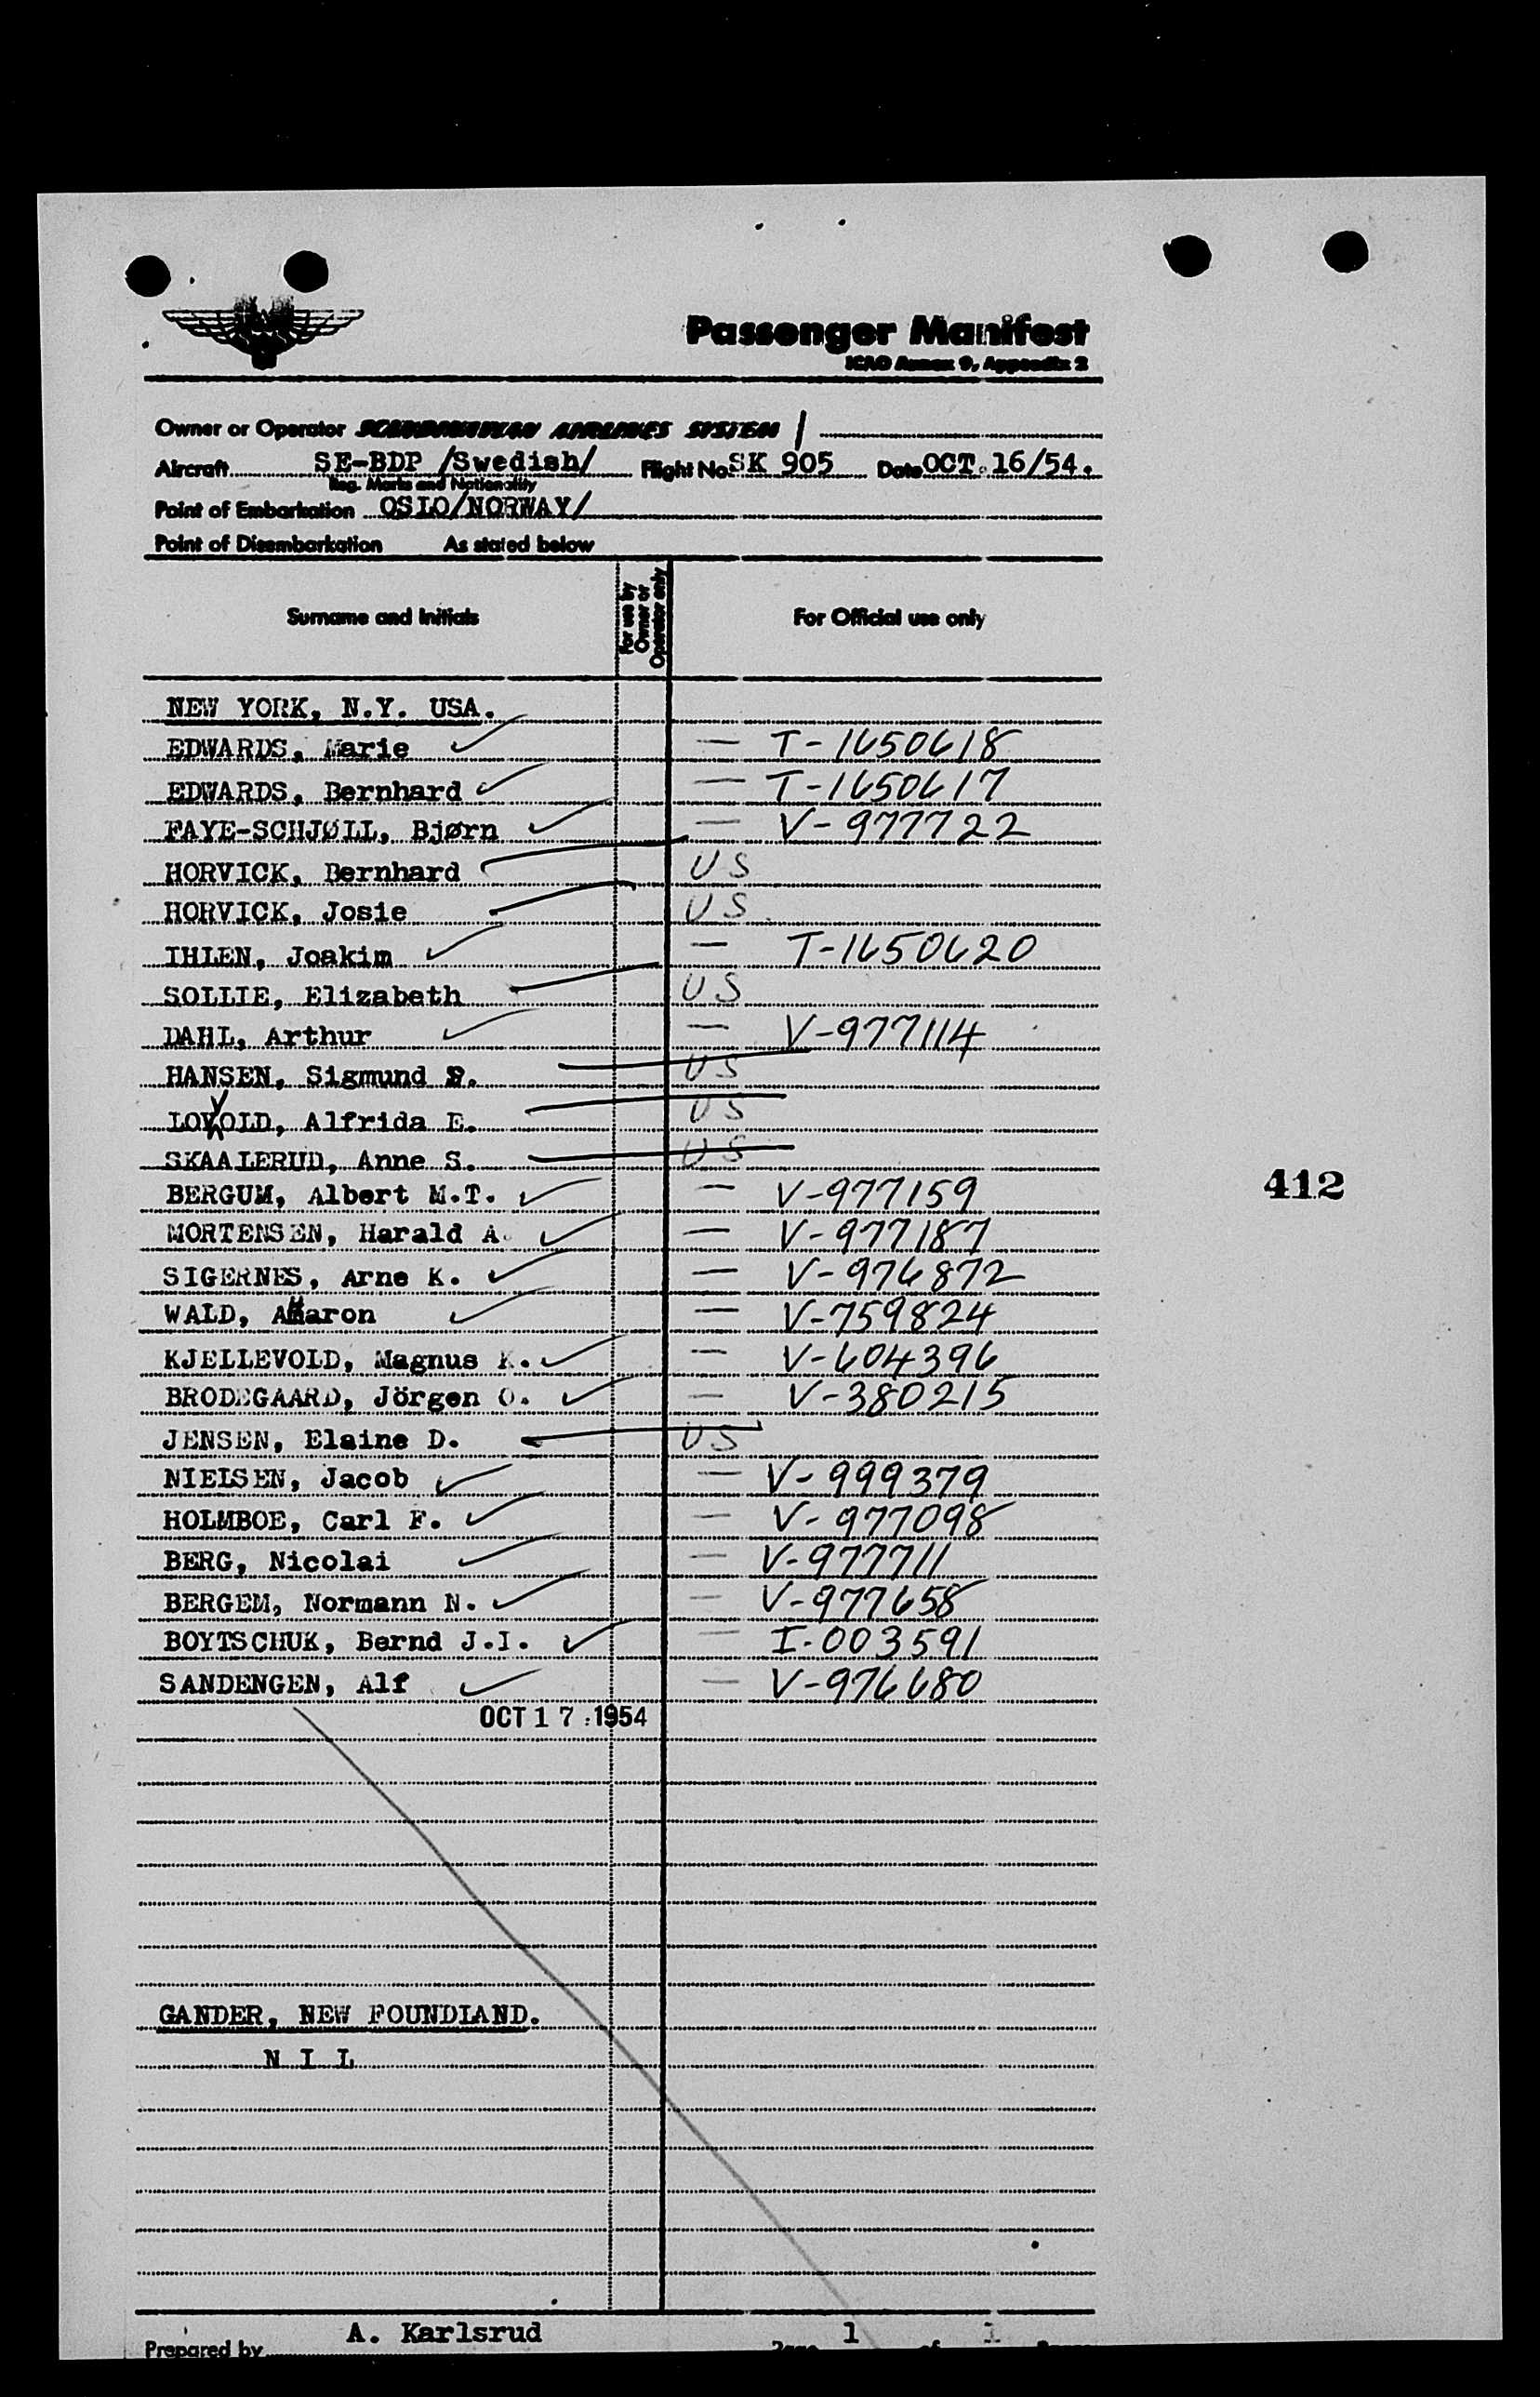 Passenger Manifest
ICAO Annex 9, Appendix 2
Owner or Operator SCANDINAVIAN AIRLINES SYSTEM /
Aircraft SE-BDP /Swedish/ Flight No. SK 905 Date OCT. 16/54.
Reg. Marks and Nationality
Point of Embarkation OSLO/NORWAY/
Point of Disembarkation As stated below
Surname and Initials For use by Owner or Operator only For Official use only
NEW YORK, N.Y. USA.
EDWARDS, Marie — T-1650618
EDWARDS, Bernhard — T-1650617
FAYE-SCHJØLL, Bjørn — V-977722
HORVICK, Bernhard US
HORVICK, Josie US
IHLEN, Joakim — T-1650620
SOLLIE, Elizabeth US
DAHL, Arthur — V-977114
HANSEN, Sigmund US
LOVOLD, Alfrida E. US
SKAALERUD, Anne S. US
BERGUM, Albert M.T. — V-977159
MORTENSEN, Harald A. — V-977187
412
SIGERNES, Arne K. — V-976872
WALD, Aharon — V-759824
KJELLEVOLD, Magnus K. — V-604396
BRODEGAARD, Jörgen O. — V-380215
JENSEN, Elaine D. US
NIELSEN, Jacob — V-999379
HOLMBOE, Carl F. — V-977098
BERG, Nicolai — V-977711
BERGEM, Normann N. — V-977658
BOYTSCHUK, Bernd J.I. — I-003591
SANDENGEN, Alf — V-976680
OCT 17 1954
GANDER, NEW FOUNDLAND.
N I L
Prepared by A. Karlsrud Page 1 of 1